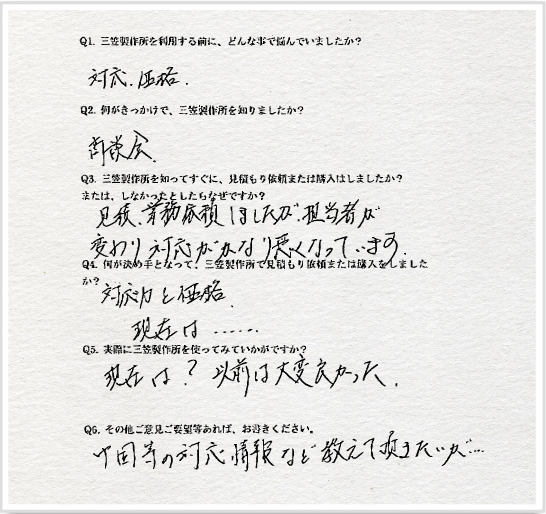 Q1. 三笠製作所を利用する前に、どんな事で悩んでいましたか？
対応、価格.
Q2. 何がきっかけで、三笠製作所を知りましたか？
商談会.
Q3. 三笠製作所を知ってすぐに、見積もり依頼または購入はしましたか？
または、しなかったとしたらなぜですか？
見積、業務依頼はしたが、担当者が
変わり対応がかなり悪くなっています.
Q4. 何が決め手となって、三笠製作所で見積もり依頼または購入をしました
か？
対応力と価格.
現在は……
Q5. 実際に三笠製作所を使ってみていかがですか？
現在は？以前は大変良かった.
Q6. その他ご意見ご要望等あれば、お書きください。
中国等の対応情報など教えて頂きたいが…